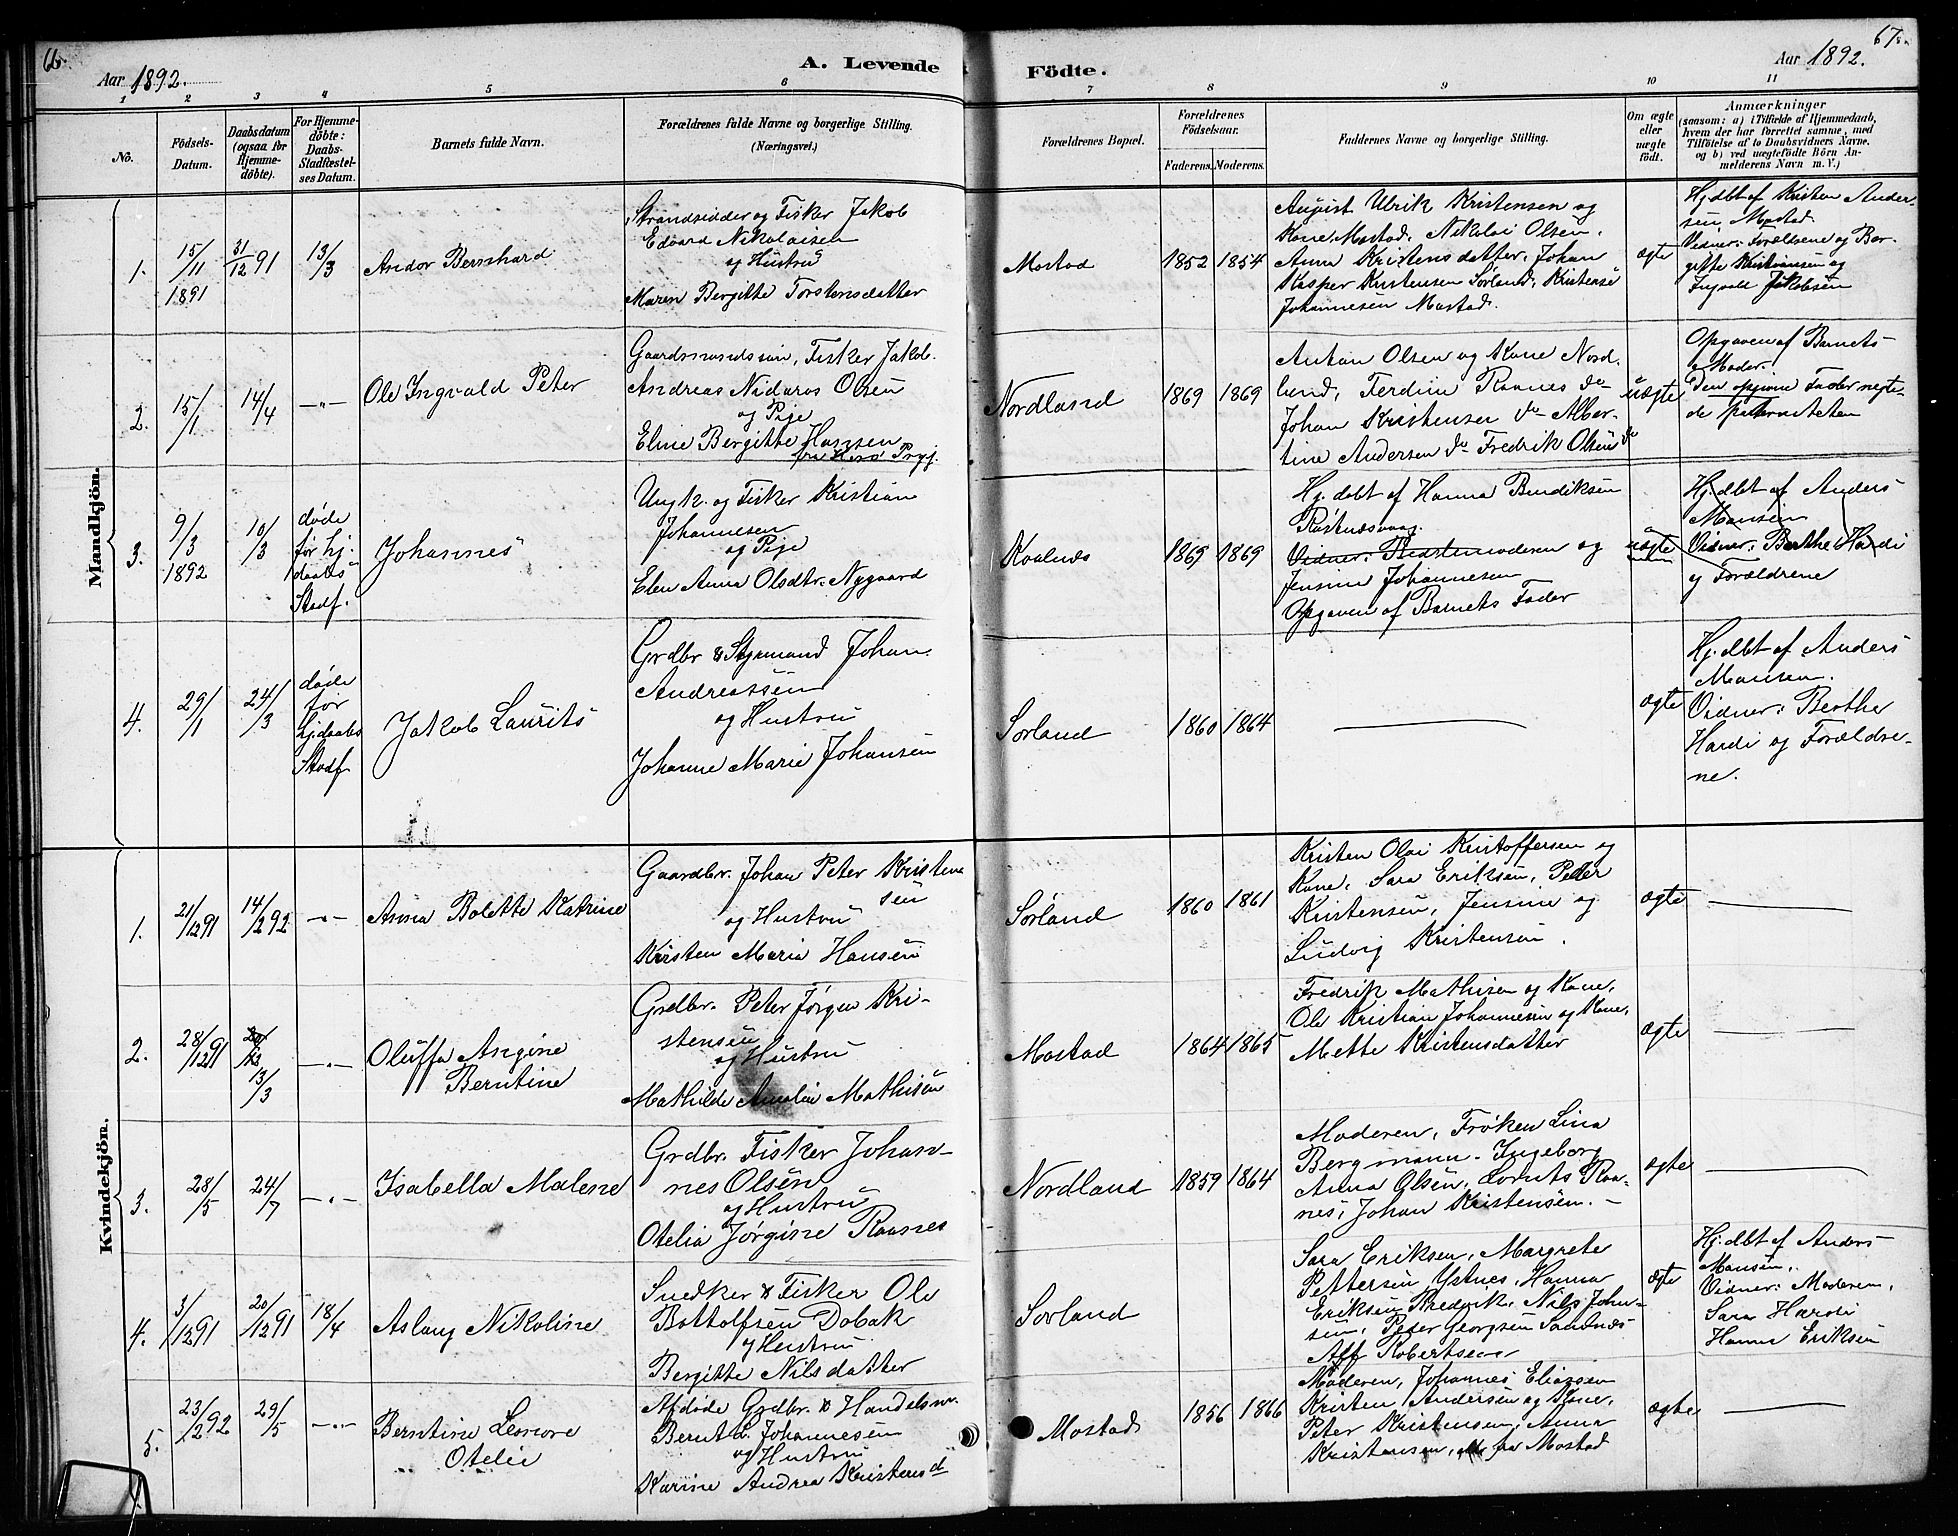 66.
Aar 1892.
A. Levende
Födte.
Aar 1892.
67.
1 2 3 4 5 6 7 8 9 10 11
No.
Födsels-
Datum.
Daabsdatum
(ogsaa for
Hjemme-
döbte).
For Hjemme-
döbte:
Daabs-
Stadfæstel-
ses Datum.
Barnets fulde Navn.
Forældrenes fulde Navne og borgerlige Stilling.
(Næringsvei.)
Forældrenes Bopæl.
Forældrenes
Födselsaar.
Faderens. Moderens.
Faddernes Navne og borgerlige Stilling.
Om ægte
eller
uægte
födt.
Anmærkninger
(saasom: a) i Tilfælde af Hjemmedaab,
hvem der har forrettet samme, med
Tilföielse af to Daabsvidners Navne,
og b) ved uægtefödte Börn An-
melderens Navn m. V.)
Mandkjön.
1.
15/11
1891
31/12 91
13/3
Andor Bernhard
Strandsidder og Fisker Jakob
Edvard Nikolaisen
og Hustru
Maren Bergitte Torstensdatter
Mostad
1852 1854
August Ulrik Kristensen og
Kone, Mostad, Nikolai Olsen,
Anna Kristensdatter, Johan
Kasper Kristensen Sørland, Kristense
Johannesen Mostad.
ægte
Hj.dbt af Kristen Ander-
sen, Mostad.
Vidner: Forældrene og Ber-
gette Kristiansen og
Ingvald Jakobsen
2.
15/1
14/4
—„—
Ole Ingvald Peter
Gaardmandssøn, Fisker Jakob
Andreas Nidaros Olsen
og Pige
Eline Bergitte Hansen
fra Herø Prgj.
Nordland
1869 1869
Anton Olsen og Kone Nord-
land, Ferdine Raanes do
Johan Kristensen do Alber-
tine Andersen do Fredrik Olsen do
uægte
Opgaven af Barnets
Moder.
Den opgivne Fader negte-
de paterniteten
3.
9/3
1892
10/3
døde
før hj.
daabs
Stadf.
Johannes
Ungk. og Fisker Kristian
Johannesen
og Pige
Elen Anna Olsdtr. Nygaard
Kaalnes
1869 1869
Hj. døbt af Hanna Bendiksen
Røstnæsvaag.
Vidner: Barnemoderen og
Jensine Johannesen
Opgaven af Barnets Fader
uægte
Hj.dbt af Anders
Monsen
Vidner: Berthe Hardi
og Forældrene
4.
29/1
24/3
døde
før
hj.daabs
Stadf.
Jakob Laurits
Grdbr & Styrmand Johan
Andreassen
og Hustru
Johanne Marie Johansen
Sørland
1860 1864
ægte
Hj.dbt af Anders
Monsen.
Vidner: Berthe
Hardi og Forældre-
ne.
Kvindekjön.
1.
21/12 91
14/2 92
—„—
Anna Bolette Katrine
Gaardbr. Johan Peter Kristen-
sen
og Hustru
Kirsten Maria Hansen
Sørland
1860 1861
Kristen Olai Kristoffersen og
Kone, Sara Eriksen, Peder
Kristensen, Jensine og
Ludvig Kristensen.
ægte
2.
28/12 91
13/3
—„—
Oluffa Angine
Berntine
Grdbr. Peter Jørgen Kri-
stensen
og Hustru
Mathilde Amalie Mathisen
Mostad
1864 1865
Fredrik Mathisen og Kone,
Ole Kristian Johannesen og Kone,
Mette Kristensdatter
ægte
3.
28/5
24/7
—„—
Isabella Malene
Grdbr. Fisker Johan-
nes Olsen
og Hustru
Otelia Jørgine Raanes
Nordland
1859 1864
Moderen, Frøken Lina
Bergmann, Ingeborg
Anna Olsen, Lornts Raa-
nes, Johan Kristensen. —
ægte
4.
3/12 91
20/12 91
18/4
Aslaug Nikoline
Snedker & Fisker Ole
Bottolfsen Dobak
og Hustru
Bergitte Nilsdatter
Sørland
Sara Eriksen, Margrete
Pettersen Ystnes, Hanna
Eriksen, Frederik, Nils John-
sen, Peder Georgsen Sandnes
Alf Robertsen
ægte
Hj.dbt af Anders
Monsen,.
Vidner: Moderen,
Sara Hardi
Hanna Eriksen
5.
23/2 92
29/5
—„—
Berntine Leonore
Otelie
Afdøde Grdbr. & Handelsm.
Bernt L. Johannesen
og Hustru
Karine Andrea Kristensd
Mostad
1856 1866
Moderen, Johannes Eliassen
Kristen Andersen og Kone,
Peter Kristensen, Anna
Kristensen, alle fra Mostad
ægte